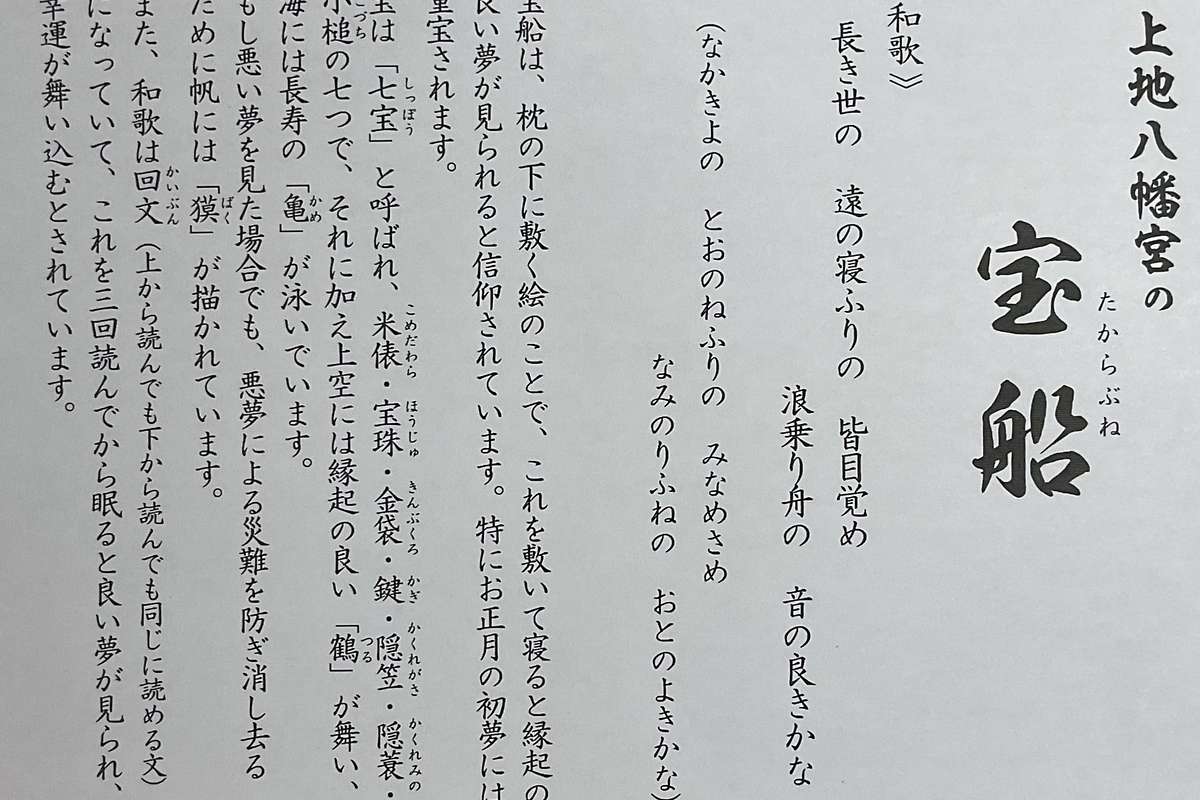 上地八幡宮の
たからぶね
宝船
和歌》
長き世の 遠の寝ふりの 皆目覚め
浪乗り舟の 音の良きかな
（なかきよの とおのねふりの みなめさめ
なみのりふねの おとのよきかな）
宝船は、枕の下に敷く絵のことで、これを敷いて寝ると縁起の
良い夢が見られると信仰されています。特にお正月の初夢には
重宝されます。
宝は「七宝」と呼ばれ、米俵・宝珠・金袋・鍵・隠笠・隠蓑・
しっぽう こめだわら ほうじゅ きんぶくろ かぎ かくれがさ かくれみの
小槌の七つで、それに加え上空には縁起の良い「鶴」が舞い、
こづち つる
海には長寿の「亀」が泳いでいます。
かめ
もし悪い夢を見た場合でも、悪夢による災難を防ぎ消し去る
ために帆には「獏」が描かれています。
ばく
また、和歌は回文（上から読んでも下から読んでも同じに読める文）
かいぶん
になっていて、これを三回読んでから眠ると良い夢が見られ、
幸運が舞い込むとされています。